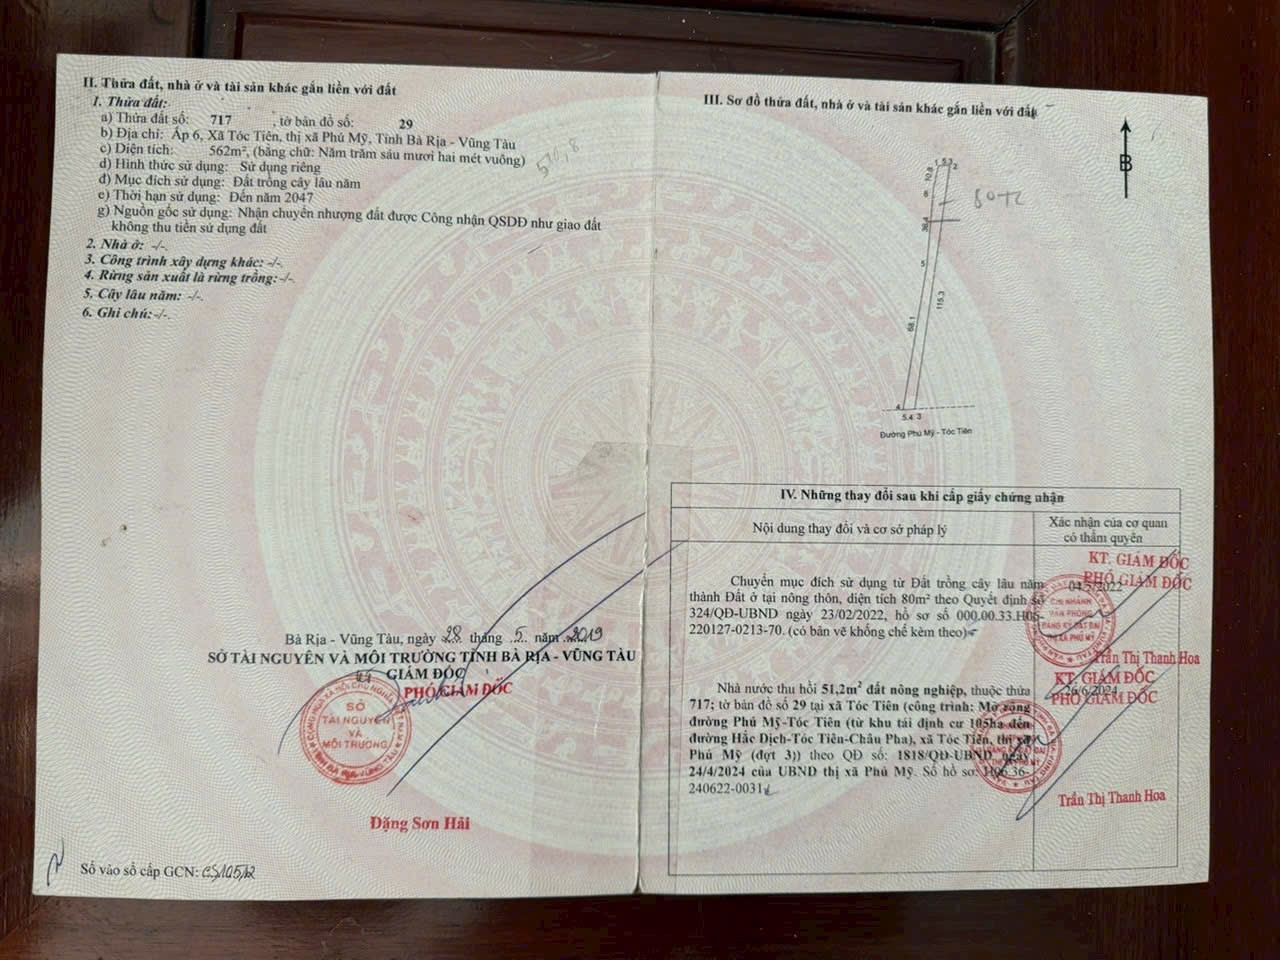 II. Thửa đất, nhà ở và tài sản khác gắn liền với đất
1. Thửa đất:
a) Thửa đất số: 717 , tờ bản đồ số: 29
b) Địa chỉ: Ấp 6, Xã Tóc Tiên, thị xã Phú Mỹ, Tỉnh Bà Rịa - Vũng Tàu
c) Diện tích: 562m², (bằng chữ: Năm trăm sáu mươi hai mét vuông)
510,8
d) Hình thức sử dụng: Sử dụng riêng
đ) Mục đích sử dụng: Đất trồng cây lâu năm
e) Thời hạn sử dụng: Đến năm 2047
g) Nguồn gốc sử dụng: Nhận chuyển nhượng đất được Công nhận QSDĐ như giao đất
không thu tiền sử dụng đất
2. Nhà ở: -/-.
3. Công trình xây dựng khác: -/-.
4. Rừng sản xuất là rừng trồng: -/-.
5. Cây lâu năm: -/-.
6. Ghi chú: -/-.
Bà Rịa - Vũng Tàu, ngày 28 tháng 5 năm 2019
SỞ TÀI NGUYÊN VÀ MÔI TRƯỜNG TỈNH BÀ RỊA - VŨNG TÀU
GIÁM ĐỐC
PHÓ GIÁM ĐỐC
SỞ
TÀI NGUYÊN
VÀ
MÔI TRƯỜNG
Đặng Sơn Hải
Số vào sổ cấp GCN:
III. Sơ đồ thửa đất, nhà ở và tài sản khác gắn liền với đất
B
1 5.3 2
10.8
6
80TC
36.4
5
115.3
68.1
4
5.4 3
Đường Phú Mỹ - Tóc Tiên
IV. Những thay đổi sau khi cấp giấy chứng nhận
Nội dung thay đổi và cơ sở pháp lý
Xác nhận của cơ quan
có thẩm quyền
Chuyển mục đích sử dụng từ Đất trồng cây lâu năm
thành Đất ở tại nông thôn, diện tích 80m² theo Quyết định số
324/QĐ-UBND ngày 23/02/2022, hồ sơ số 000.00.33.H06-
220127-0213-70. (có bản vẽ khống chế kèm theo)
KT. GIÁM ĐỐC
PHÓ GIÁM ĐỐC
CHI NHÁNH
VĂN PHÒNG
ĐĂNG KÝ ĐẤT ĐAI
THỊ XÃ PHÚ MỸ
Trần Thị Thanh Hoa
Nhà nước thu hồi 51,2m² đất nông nghiệp, thuộc thửa
717; tờ bản đồ số 29 tại xã Tóc Tiên (công trình: Mở rộng
đường Phú Mỹ-Tóc Tiên (từ khu tái định cư 105ha đến
đường Hắc Dịch-Tóc Tiên-Châu Pha), xã Tóc Tiên, thị xã
Phú Mỹ (đợt 3)) theo QĐ số: 1818/QĐ-UBND ngày
24/4/2024 của UBND thị xã Phú Mỹ. Số hồ sơ: H06.36-
240622-0031
KT. GIÁM ĐỐC
26/6/2024
PHÓ GIÁM ĐỐC
Trần Thị Thanh Hoa